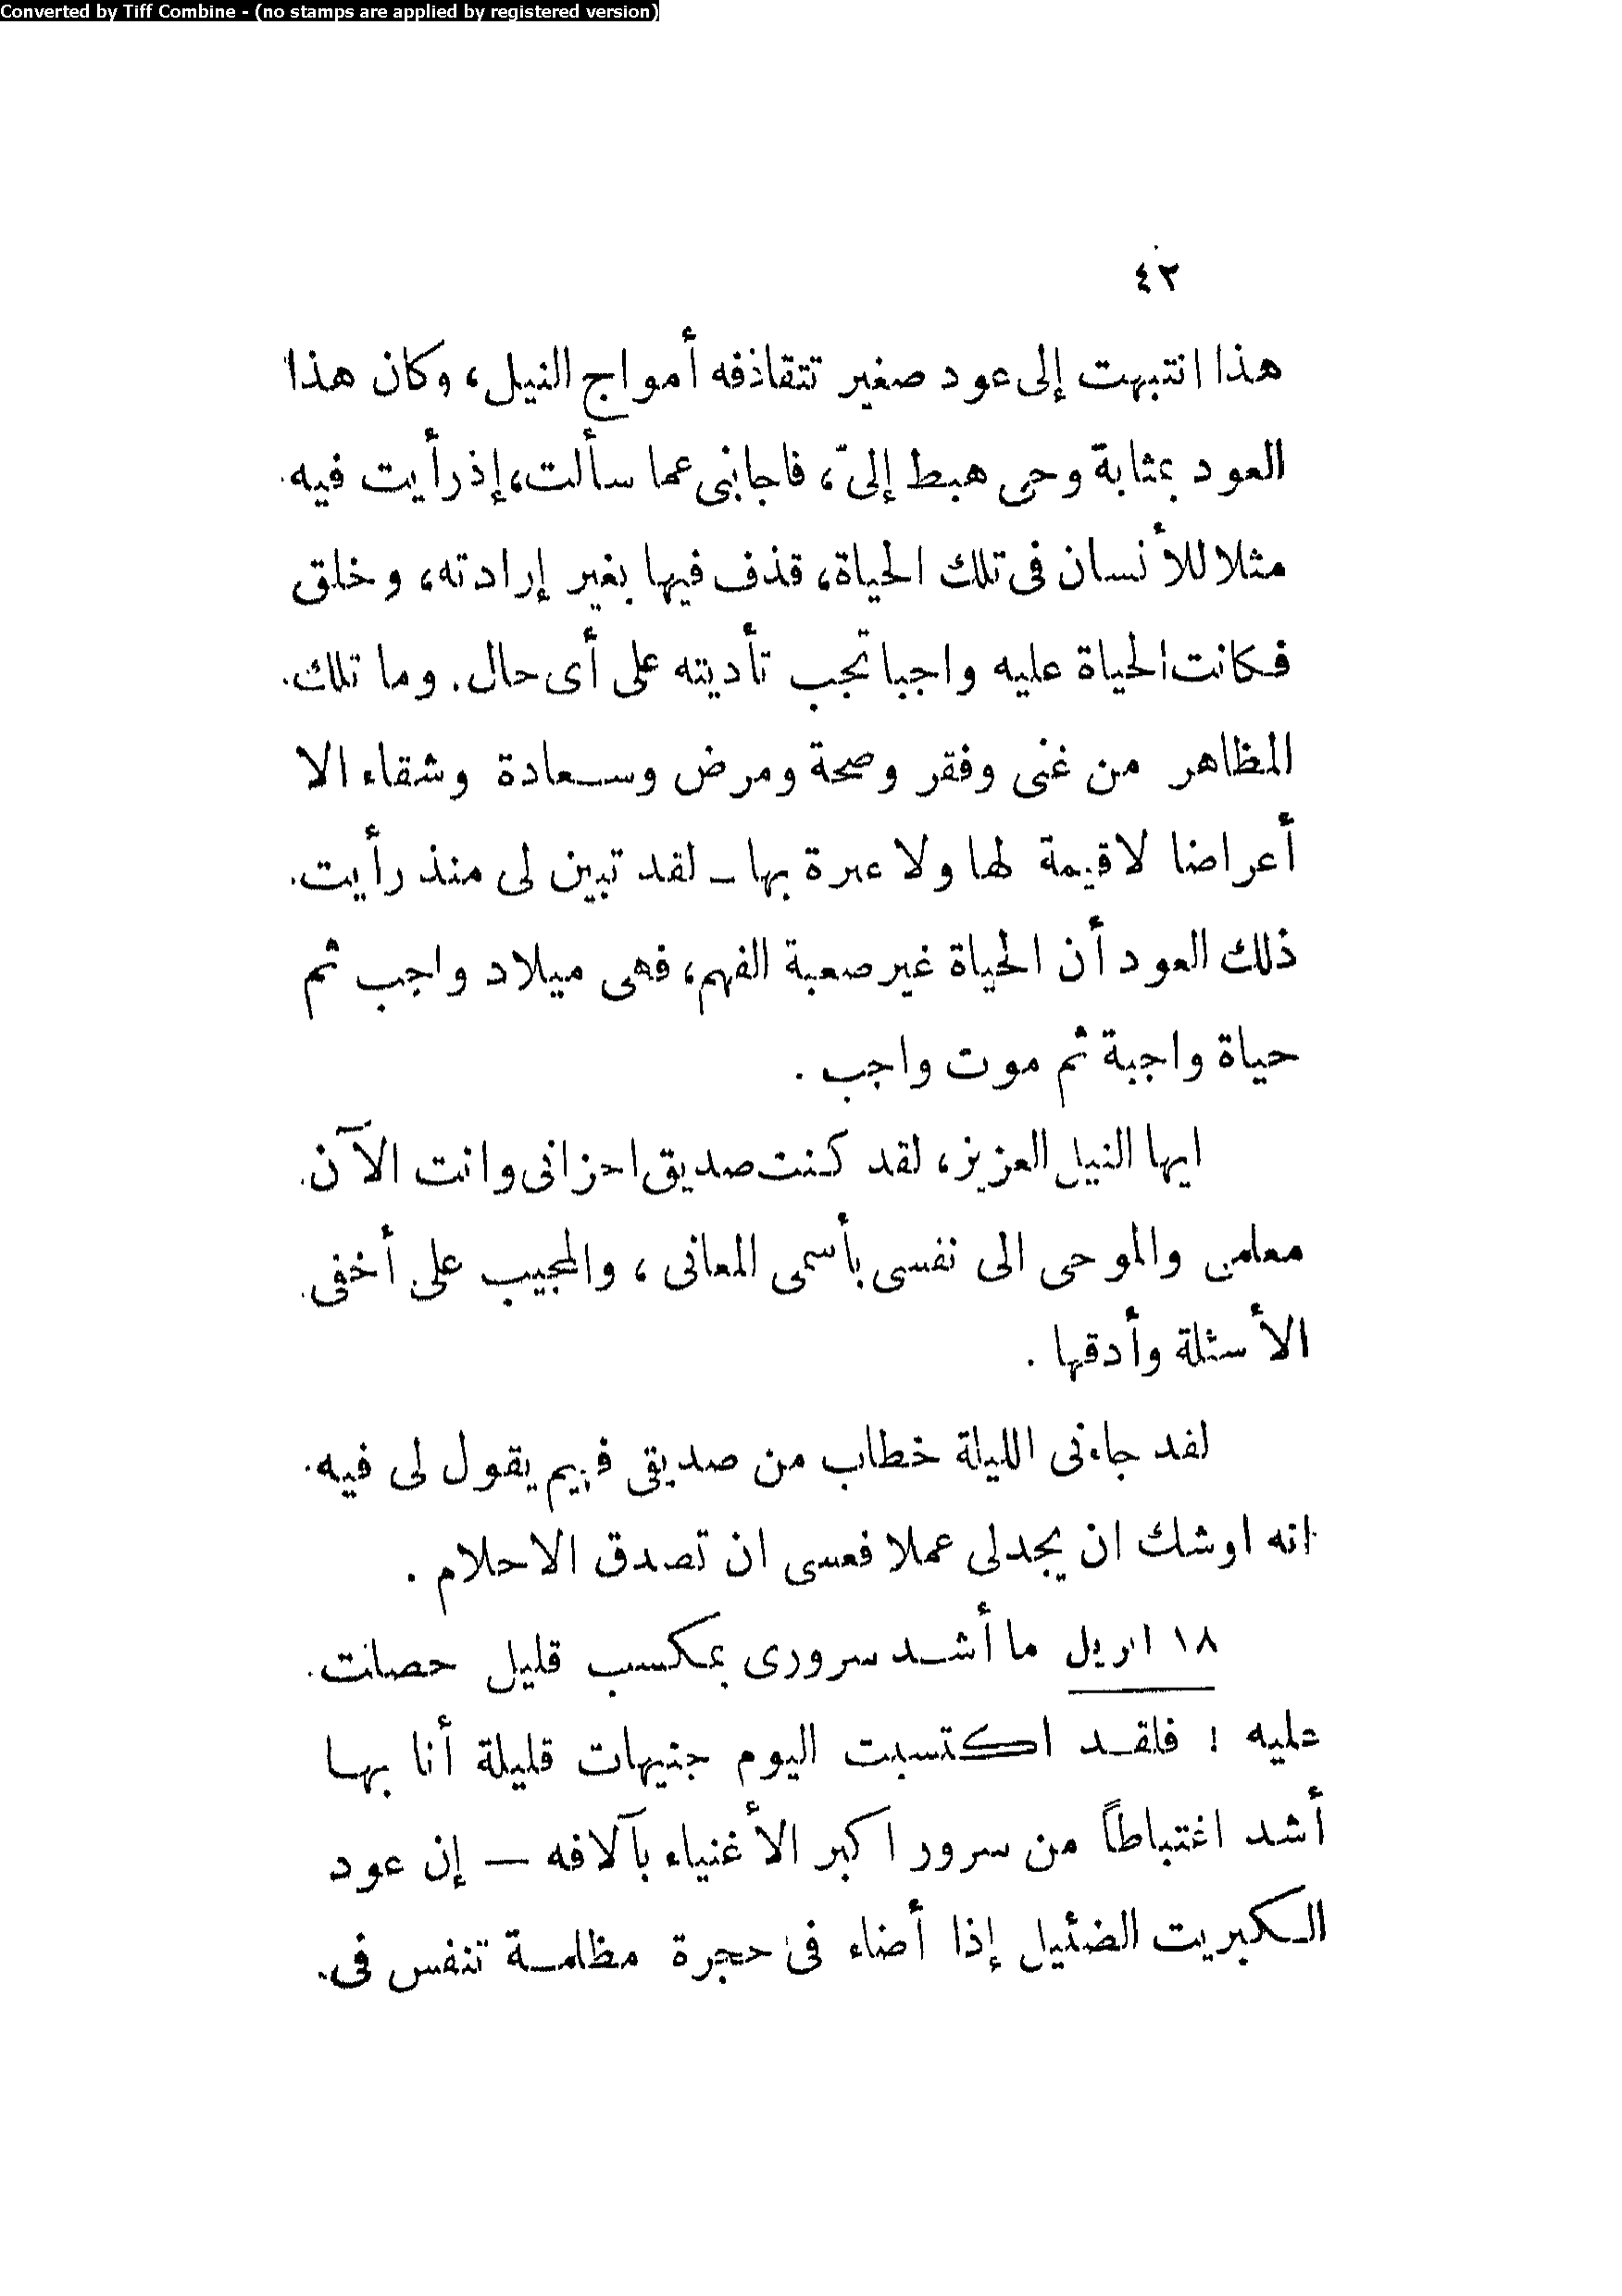 Converted by Tiff Combine - (no stamps are applied by registered version)
٤٢
هذا انتبهت إلى عود صغير تتقاذفه أمواج النيل، وكان هذا
العود بمثابة وحى هبط إلىّ، فاجابنى عما سألت، إذ رأيت فيه
مثلا للأنسان فى تلك الحياة، قذف فيها بغير إرادته، وخلق
فكانت الحياة عليه واجبا تجب تأديته على أى حال. وما تلك
المظاهر من غنى وفقر وصحة ومرض وسعادة وشقاء الا
أعراضا لا قيمة لها ولا عبرة بها ــ لقد تبين لى منذ رأيت
ذلك العود أن الحياة غير صعبة الفهم، فهى ميلاد واجب ثم
حياة واجبة ثم موت واجب .
ايها النيل العزيز، لقد كنت صديق احزانى وانت الآن
معلمى والموحى الى نفسى بأسمى المعانى ، والمجيب على أخفى
الأسئلة وأدقها .
لقد جاءنى الليلة خطاب من صديقى فهيم يقول لى فيه
انه اوشك ان يجد لى عملا فعسى ان تصدق الاحلام .
١٨ ابريل ما أشد سرورى بمكسب قليل حصلت
عليه ! فلقد اكتسبت اليوم جنيهات قليلة أنا بها
أشد اغتباطاً من سرور اكبر الأغنياء بآلافه — إن عود
الكبريت الضئيل إذا أضاء فى حجرة مظلمة تنفس فى